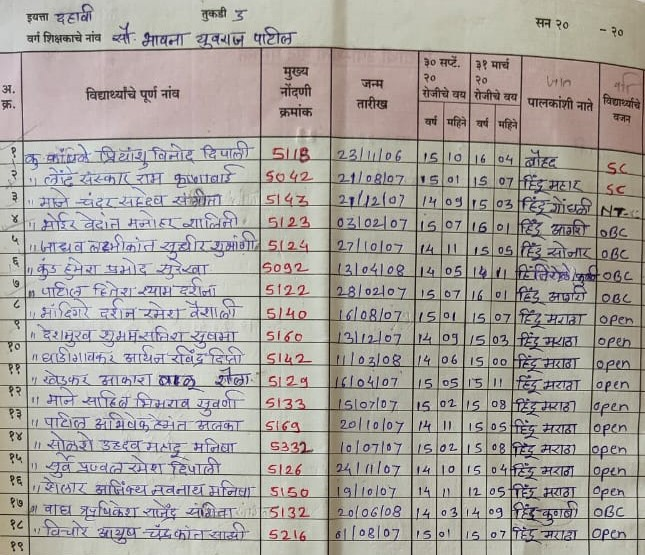 इयत्ता दहावी तुकडी ड सन २० - २०
वर्ग शिक्षकाचे नांव सौ. भावना युवराज पाटील
अ. क्र. विद्यार्थ्याचे पूर्ण नांव मुख्य नोंदणी क्रमांक जन्म तारीख ३० सप्टें. २० रोजीचे वय वर्ष महिने ३१ मार्च २० रोजीचे वय वर्ष महिने पालकांशी नाते जात विद्यार्थ्याचे वजन
१ कु. कांबळे प्रियांशु विनोद दिपाली 5118 23/11/06 15 10 16 04 बौद्ध SC
२ " लेंद्रे संस्कार राम कृष्णाबाई 5042 21/08/07 15 01 15 07 हिंदू महार SC
३ " माने 5143 21/12/07 14 09 15 03 हिंदू गोंधळी NT-C
४ " भोईर वेदांत मनोहर शालिनी 5123 03/02/07 15 07 16 01 हिंदू आगरी OBC
५ " जाधव लक्ष्मीकांत सुधीर शुभांगी 5124 27/10/07 14 11 15 05 हिंदू सोनार OBC
६ " कुंड प्रमोद सुरेखा 5092 13/04/08 14 05 14 11 OBC
७ " पाटील हितेश श्याम दर्शना 5122 28/02/07 15 07 16 01 हिंदू आगरी OBC
८ " भांदिगरे दर्शन रमेश वैशाली 5140 16/08/07 15 01 15 07 हिंदू मराठा open
९ " देशमुख शुभम सतिश सुषमा 5160 13/12/07 14 09 15 03 हिंदू मराठा open
१० " घाडीगावकर अथर्व रविंद्र दिप्ती 5142 11/03/08 14 06 15 00 हिंदू मराठा open
११ " खेडकर आकाश शैला 5129 16/04/07 15 05 15 11 हिंदू मराठा open
१२ " माने साहिल भिमराव सुवर्णा 5133 15/07/07 15 02 15 08 हिंदू मराठा open
१३ " पाटील अभिषेक हेमंत अलका 5169 20/10/07 14 11 15 05 हिंदू मराठा open
१४ " सोळशे उध्दव महादू मनिषा 5332 10/07/07 15 02 15 08 हिंदू मराठा open
१५ " सुर्वे प्रज्वल रमेश दिपाली 5126 24/11/07 14 10 15 04 हिंदू मराठा open
१६ " शेलार अजिंक्य नवनाथ मनिषा 5150 19/10/07 14 11 12 05 हिंदू मराठा open
१७ " वाघ ऋषिकेश राजेंद्र संगिता 5132 20/06/08 14 03 14 09 हिंदू-कुणबी OBC
१८ " विचारे आयुष चंद्रकांत साक्षी 5216 01/08/07 15 01 15 07 हिंदू मराठा open
१९